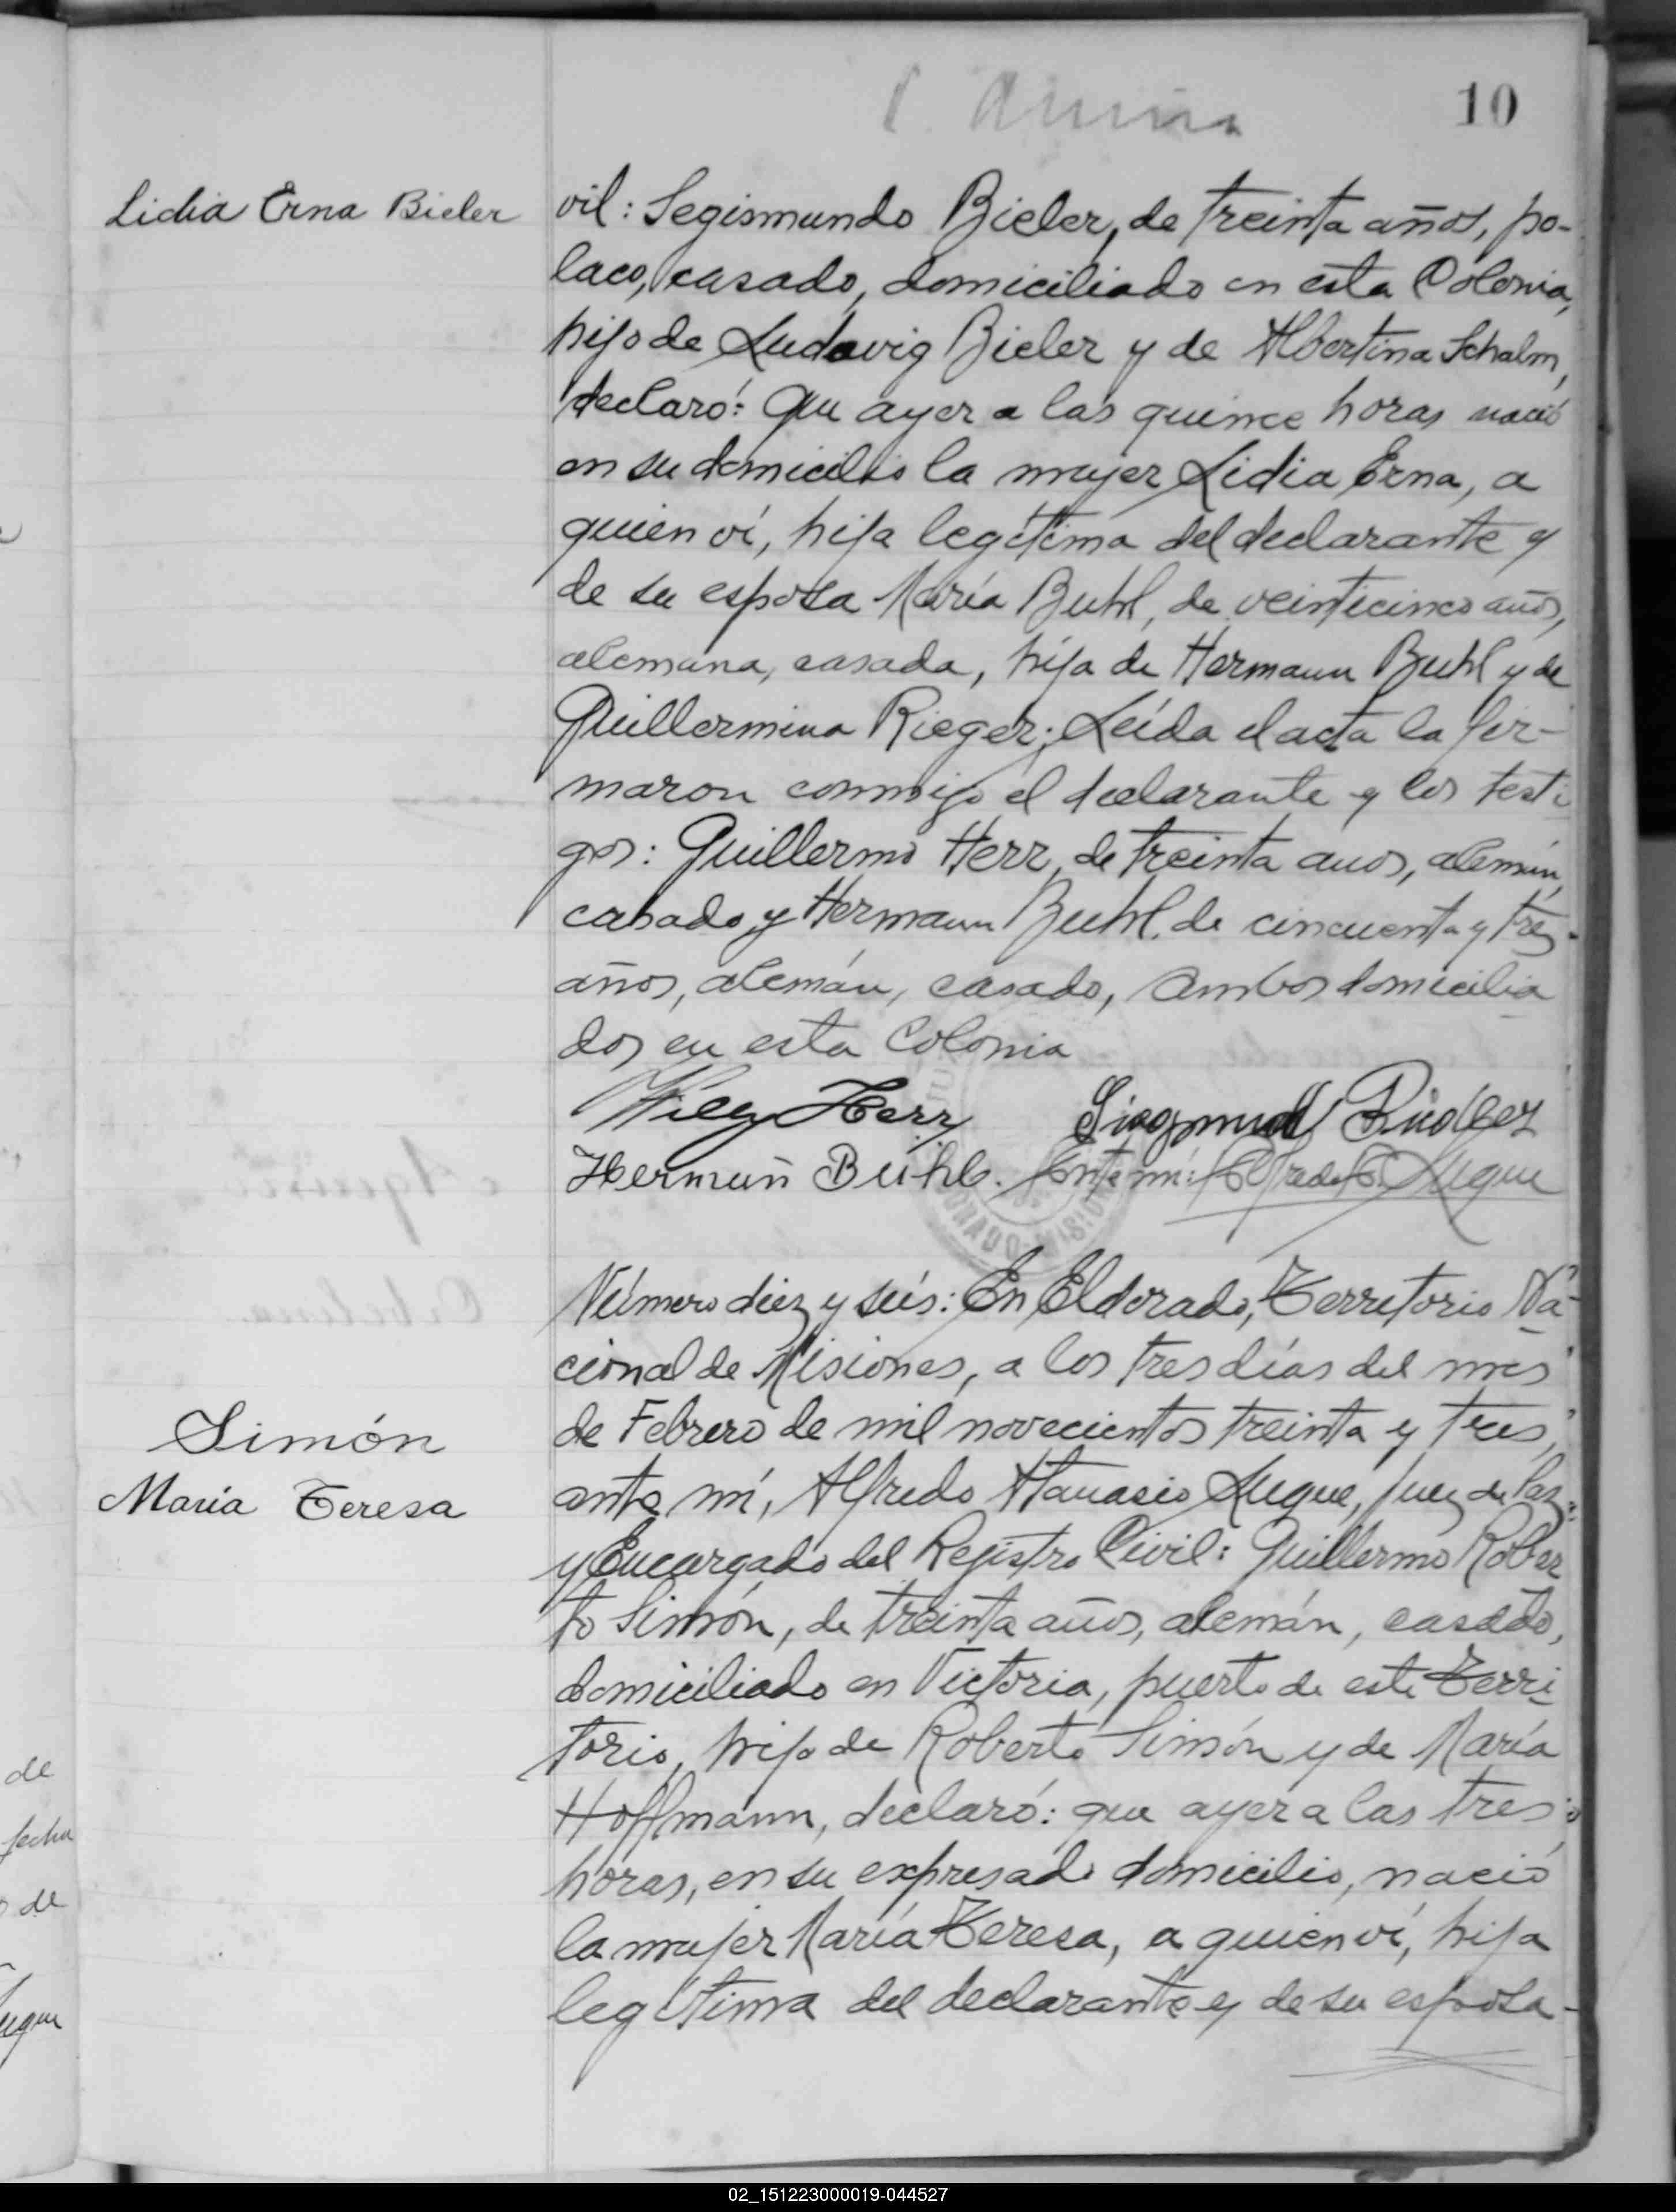 10
Lidia Erna Bieler
vil: Segismundo Bieler, de treinta años, po-
laco, casado, domiciliado en esta Colonia,
hijo de Ludovig Bieler y de Albertina Schalm,
declaró: Que ayer a las quince horas nació
en su domicilio la mujer Lidia Erna, a
quien ví, hija legítima del declarante y
de su esposa María Buhl, de veinticinco años,
alemana, casada, hija de Hermann Buhl y de
Guillermina Rieger; Leída el acta la fir-
maron conmigo el declarante y los testi
gos: Guillermo Herr, de treinta anos, alemán,
casado y Hermann Buhl, de cincuenta y tres
años, alemán, casado, ambos domicilia
dos en esta Colonia
Willy Herr Siegmund
Hermann Buhl. Ante mí: Alfredo A. Luque
ORADO-MISION
Número diez y seis: En Eldorado, Territorio Na-
cional de Misiones, a los tres días del mes
de Febrero de mil novecientos treinta y tres,
Simón
María Teresa
ante mí, Alfredo Atanasio Luque, Juez de Paz
y Encargado del Registro Civil: Guillermo Rober
to Simón, de treinta años, alemán, casado,
domiciliado en Victoria, puerto de este Terri
torio, hijo de Roberto Simón y de María
Hoffmann, declaró: que ayer a las tres
horas, en su expresado domicilio, nació
la mujer María Teresa, a quien ví, hija
legítima del declarante y de su esposa-
de
fecha
de
uque
02_151223000019-044527